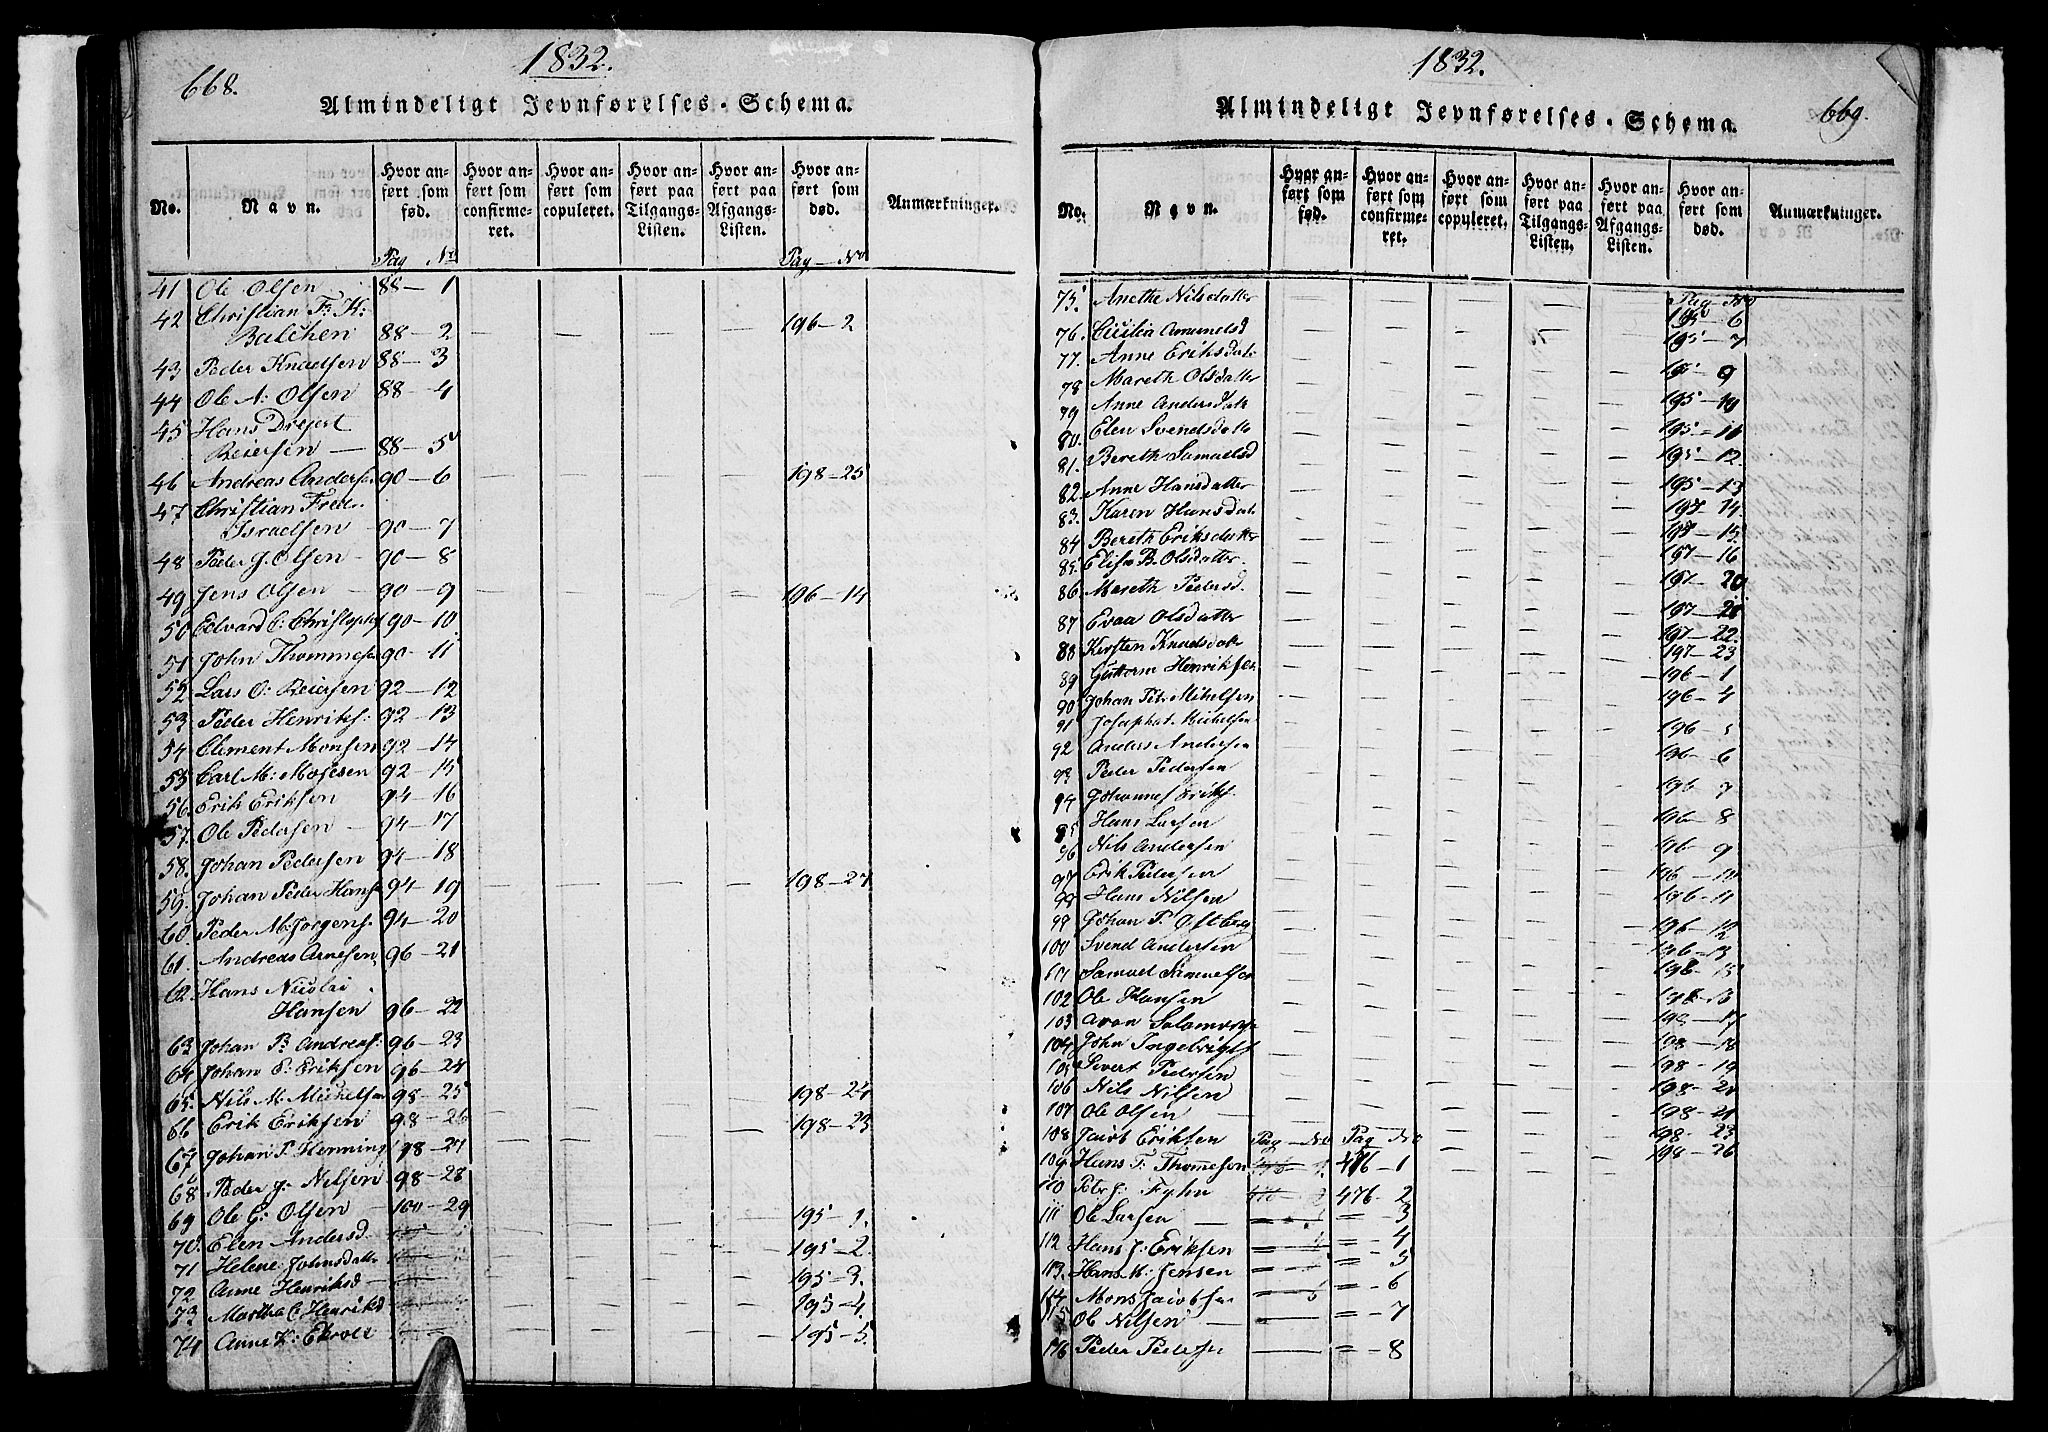 668.
1832.
Almindeligt Jevnførelses-Schema.
No.
Navn.
Hvor anført som fød.
Hvor anført som confirmeret.
Hvor anført som copuleret.
Hvor anført paa Tilgangs-Listen.
Hvor anført paa Afgangs-Listen.
Hvor anført som død.
Anmærkninger.
Pag No
Pag — No
41 Ole Olsen 88 — 1
42 Christian F. K:
Balchen 88 — 2 — — — — 196 — 2
43 Peder Knudsen 88 — 3
44 Ole A: Olsen 88 — 4
45 Hans
Beiersen — 88 — 5
46 Andreas Anders 90 — 6 — — — — 198 — 25
47 Christian Fred.
Israelsen — 90 — 7
48 Peder J. Olsen — 90 — 8
49 Jens Olsen — 90 — 9 — — — — 196 — 14
50 Edvard C: Christoph 90 — 10
51 John Thommes 90 — 11
52 Lars O: Beiersen 92 — 12
53 Peder Henriks: 92 — 13
54 Clement Monsen 92 — 14
55 Carl M: Mosesen 92 — 15
56. Erik Eriksen 94 — 16
57. Ole Pedersen — 94 — 17
58. Johan Pedersen 94 — 18
59. Johan Peder Hans 94 — 19 — — — — 198 — 27
60. Peder M: Jørgens. 94 — 20
61. Andreas Arnesen 96 — 21
62 Hans Nicolai
Hansen 96 — 22
63 Johan B Andreas: 96 — 23
64 Johan E: Eriksen 96 — 24
65 Nils M: Michelsen 98 — 25 — — — — 198 — 24
66 Erik Eriksen 98 — 26 — — — — 198 — 23
67 Johan P. Henning 98 — 27
68 Peder J: Nilsen 98 — 28
69 Ole G: Olsen — 100 — 29 195 — 1.
70. Elen Andersd 195 — 2.
71 Helene Johnsdatter 195 — 3.
72 Anne Henriksd 195 — 4.
73 Martha C: Henriksd
74 Anne K: 195 — 5.
1832.
669.
Almindeligt Jevnførelses-Schema.
No.
Navn.
Hvor anført som fød.
Hvor anført som confirmeret.
Hvor anført som copuleret.
Hvor anført paa Tilgangs-Listen.
Hvor anført paa Afgangs-Listen.
Hvor anført som død.
Anmærkninger.
Pag — No
75. Anethe Nilsdatter 195 — 6
76. Cicilia Amundsd 195 — 7
77. Anne Eriksdatr
78 Mareth Olsdatter 195 — 9
79 Anne Andersdatr 195 — 10
80. Elen Svendsdatter 195 — 11
81. Bereth Samuelsd 195 — 12.
82. Anne Hansdatter 195 — 13
83. Karen Hansdatr 197 — 14.
84 Bereth Eriksdatter 197 — 15
85. Elisa B. Olsdatter. 197 — 16
86. Mareth Pedersd. 197 — 20
87 Evaa Olsdatter 197 — 21
88 Kirsten Knudsdatr 197 — 22.
197 — 23
89 Guttorm Henriksen 196 — 1
90. Johan Petr Mikelsen 196 — 4
91 Josaphat Mickelsen
92 Anders Andersen 196 — 5
93 Peder Pedersen 196 — 6
94 Johannes Eriks. 196 7
95 Hans Larsen 196 — 8
96 Nils Andersen 196 — 9
97 Erik Pedersen
98 Hans Nilsen 196 — 11
99 Johan P. Østberg 196 — 12
100 Svend Andersen 196 — 13
101 Samuel Samuelsen 198 — 15
102 Ole Hansen
103 Aron Salomons 198 — 17
104 John Ingebrigts 198 — 18
105 Sivert Pedersen 198 — 19
106 Nils Nilsen 198 — 20
107 Ole Olsen — 198 — 21
108 Jacob Eriksen Pag — No Pag — No 198 — 23
109 Hans T: Thomesen 476 — 1 198 — 26
110 Petr J: Fyhn 476 — 2
111 Ole Larsen — = — 3
112 Hans J: Eriksen = — 4
113. Hans M: Jensen = — 5
114 Mons Jacobsen = — 6
115 Ole Nilsen — = — 7
116 Peder Peders = — 8